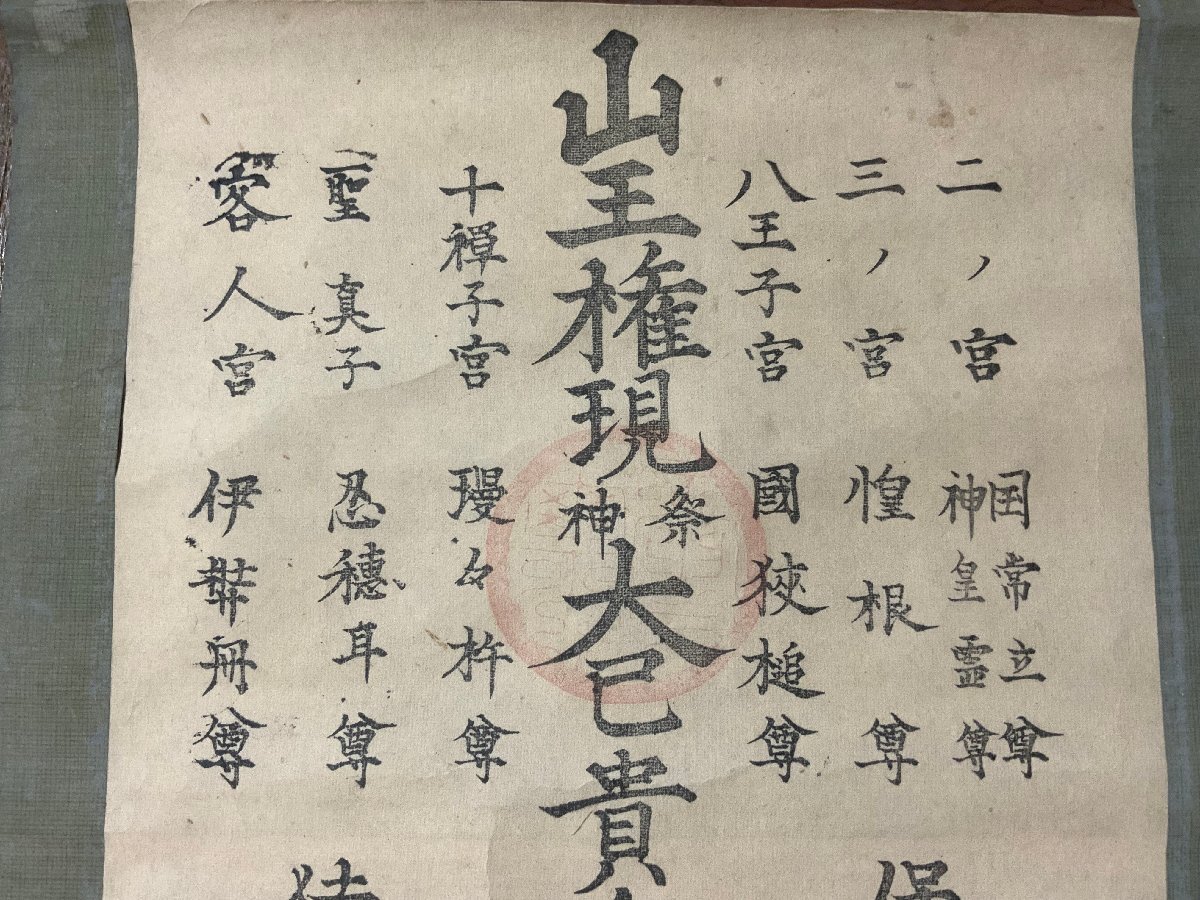 二ノ宮 国常立尊
神皇霊尊
三ノ宮 惶根尊
八王子宮 國狹槌尊
山王権現
祭神
大己貴
十禅子宮 瓊々杵尊
聖真子 忍穂耳尊
客人宮 伊弉冊尊